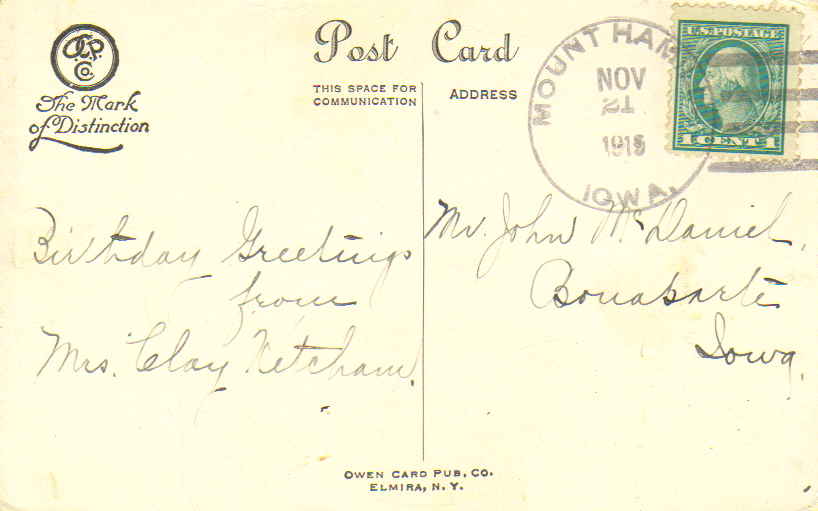 O.C.P. Co.
The Mark
of Distinction
Post Card
THIS SPACE FOR
COMMUNICATION
ADDRESS
MOUNT HAM
NOV
21
1915
IOWA.
U.S. POSTAGE
1 CENT 1
Birthday Greetings
from
Mrs. Clay Ketcham.
Mr. John McDaniel,
Bonaparte
Iowa.
OWEN CARD PUB. CO.
ELMIRA, N.Y.